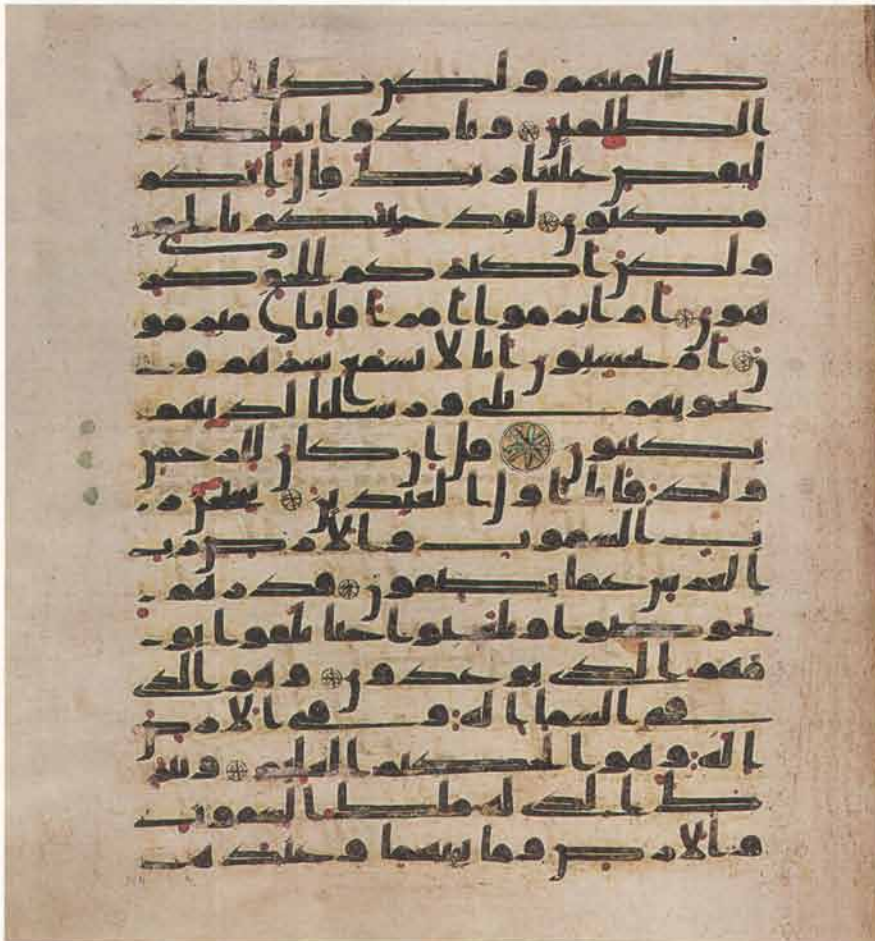 ظلمنهم ولكن كانوا هم
الظلمين ونادوا يملك
ليقض علينا ربك قال انكم
مكثون لقد جئنكم بالحق
ولكن اكثركم للحق كر
هون ام ابرموا امرا فانا مبرمو
ن ام يحسبون انا لا نسمع سرهم و
نجويهم بلى ورسلنا لديهم
يكتبون قل ان كان للرحمن
ولد فانا اول العبدين سبحن ر
ب السموت والارض رب
العرش عما يصفون فذرهم
يخوضوا ويلعبوا حتى يلقوا يو
مهم الذي يوعدون وهو الذي
في السما اله وفي الارض
اله وهو الحكيم العليم وتبر
ك الذي له ملك السموت
والارض وما بينهما وعنده